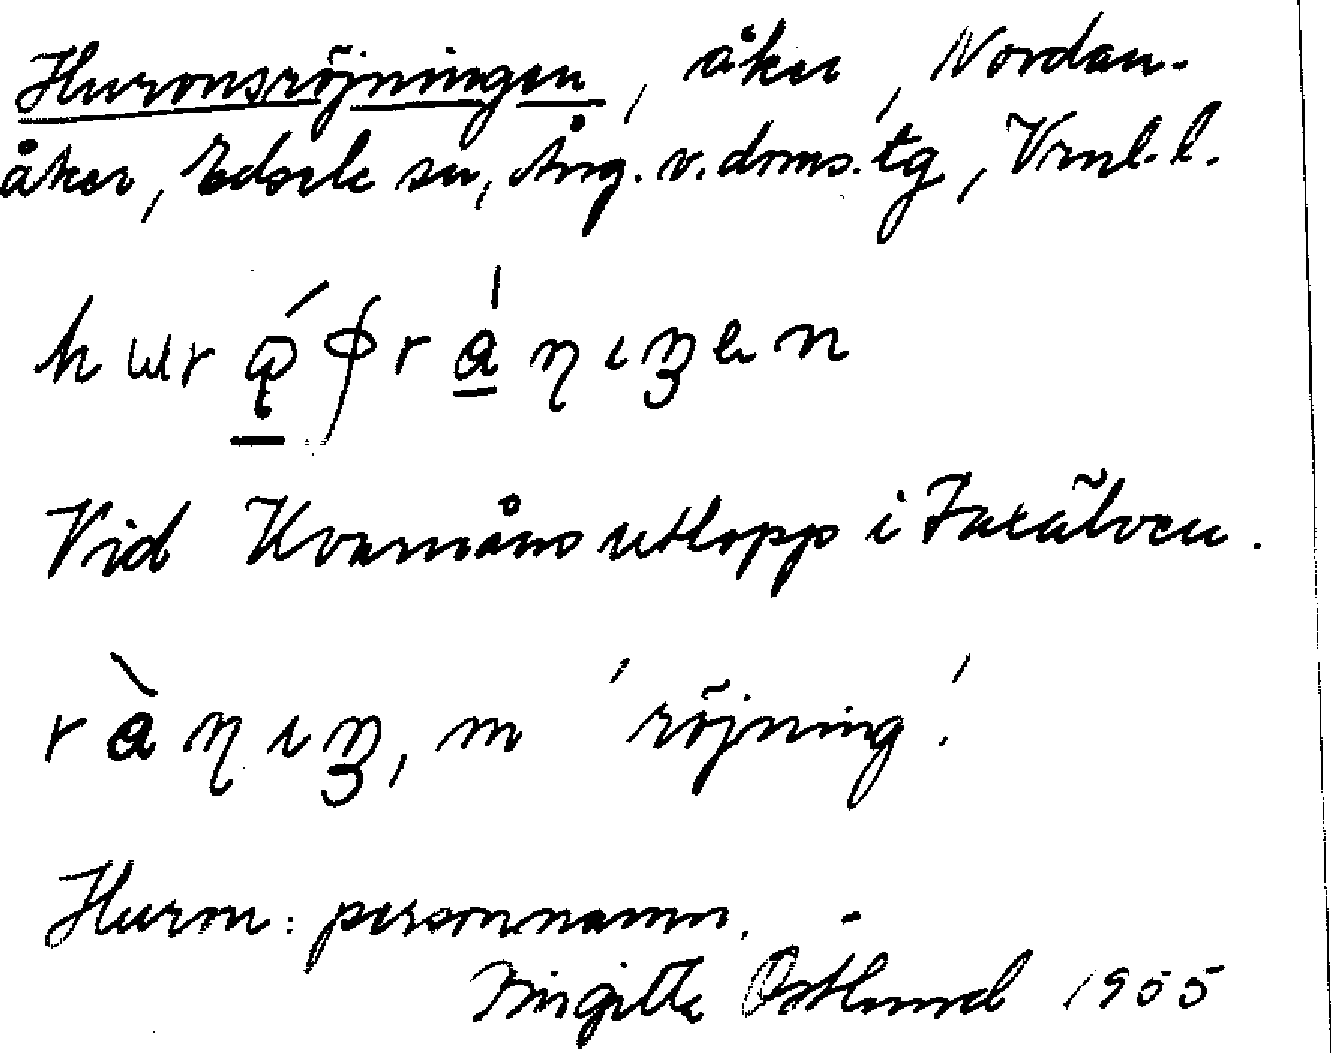 Huronsröjningen, åker, Nordan-
åker, Edsele sn, Ång. v. doms. tg, Vrnl. l.
Vid Kvarnåns utlopp i Faxälven.
'röjning'.
Huron: personnamn. -
Birgitta Östlund 1955